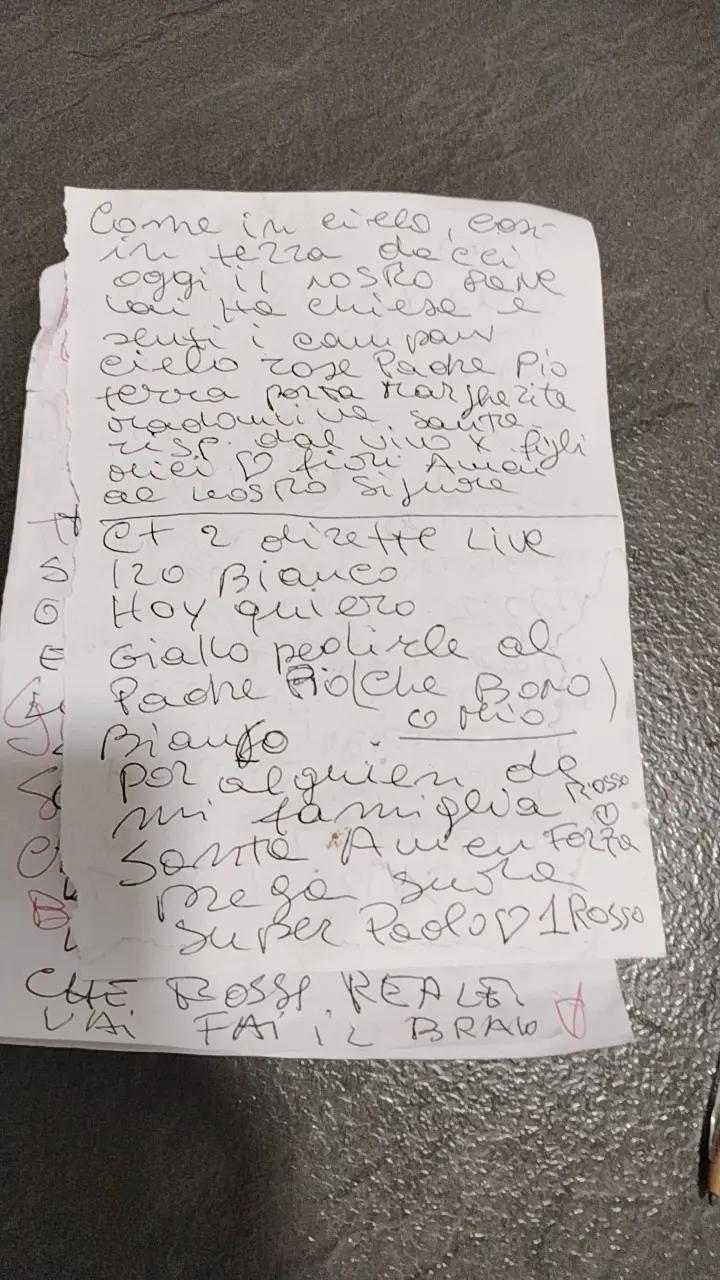 Come in cielo, così
in terra dacci
oggi il nostro pane
vai Ha chiesa e
senti i campan
cielo rose Padre Pio
terra porta Margherita
madonnina santa
risp. dal vivo x figli
miei ♡ fiori Amen
al nostro Signore
Ct 2 dirette Live
120 Bianco
Hoy quiero
Giallo pedirle al
Padre Pio (Che Bono)
o Mio
Bianco
por alguien de
mi famiglia Rosso
Santa Amen Forza
prega suora
super Paolo ♡ 1 Rosso
S
O
E
CHE BOSSI REALE
VAI FAI IL BRAVO